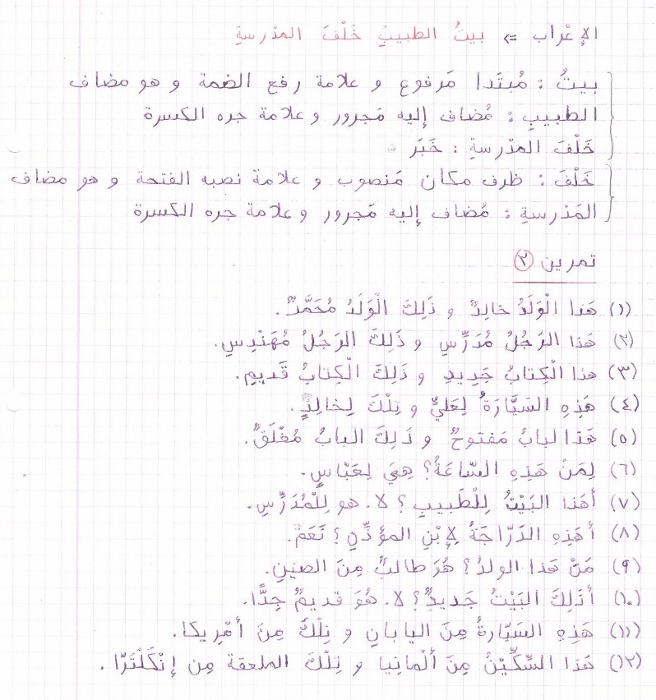 الإعْراب => بيتُ الطبيبِ خَلْفَ المدرسةِ
بيتُ : مُبتَدا مَرفوع و علامة رفع الضمة و هو مضاف
الطبيبِ : مُضاف إليه مَجرور و علامة جره الكسرة
خَلْفَ المدْرسةِ : خَبَر
خَلْفَ : ظرف مكان مَنصوب و علامة نصبه الفتحة و هو مضاف
المَدْرسةِ : مُضاف إليه مَجرور و علامة جره الكسرة
تمرين (٢)
(١) هَذا الْوَلَدُ خالِدٌ و ذَلِكَ الْوَلَدُ مُحَمَّدٌ.
(٢) هَذا الرَجُلُ مُدَرِّسٌ و ذَلِكَ الرَجُلُ مُهَنْدِسٌ.
(٣) هذا الْكِتابُ جَدِيدٌ و ذَلِكَ الْكِتابُ قَدِيمٌ.
(٤) هَذِهِ السَيَّارَةُ لِعَليٍّ و تِلْكَ لِخالِدٍ.
(٥) هَذا البابُ مَفتوحٌ و ذَلِكَ البابُ مُغْلَقٌ.
(٦) لِمَنْ هَذِهِ السَّاعَةُ؟ هِيَ لِعَبّاسٍ.
(٧) أهَذا البَيْتُ لِلْطَبيبِ؟ لا. هو لِلْمُدَرِّسِ.
(٨) أهَذِهِ الدَرّاجَةُ لِإبْنِ المؤذِّنِ؟ نَعَمْ.
(٩) مَنْ هَذا الولدُ؟ هُوَ طالبٌ مِنَ الصينِ.
(١٠) أذَلِكَ البَيْتُ جَديدٌ؟ لا. هُوَ قديمٌ جِدًّا.
(١١) هَذِهِ السَيّارةُ مِنَ اليابانِ و تِلْكَ مِنَ أمْرِيكا.
(١٢) هَذا السِّكِّيْنُ مِنَ ألْمانِيا و تِلْكَ الملعقة مِن إنْكَلْتَرّا.